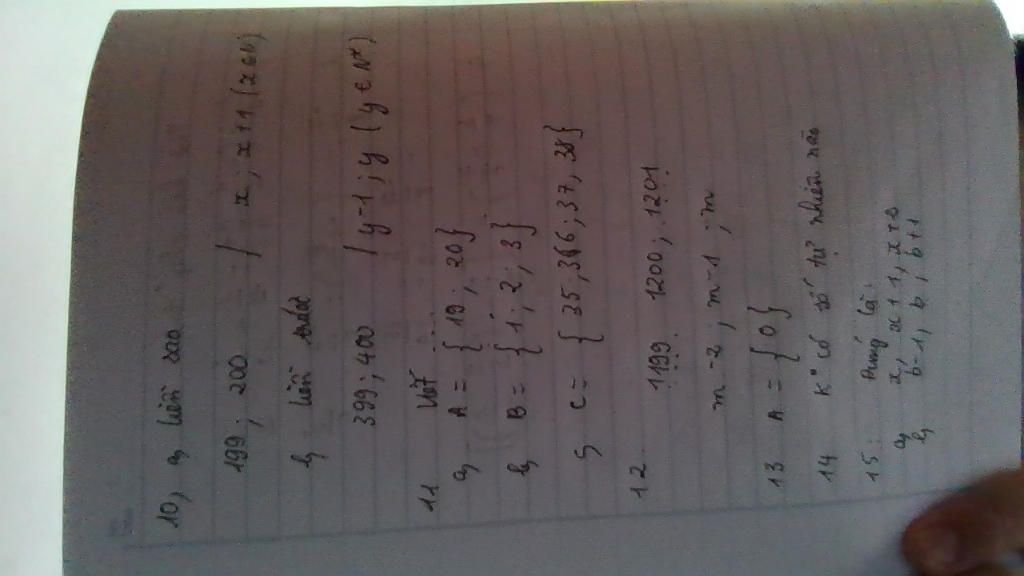 10, a, liền sau
199; 200 / x; x+1 (x ∈ N)
b, liền trước
399; 400 / y-1; y (y ∈ N*)
11 Viết
a, A = { 19; 20}
b, B = { 1; 2; 3}
C = { 35, 366; 37, 38}
12
1199 1200; 1201
m-2; m-1; m
13 A = { 0 }
14 K° có số tự nhiên nào
15: Đúng là:
a, x, x+1,
b, b-1, b, b+1